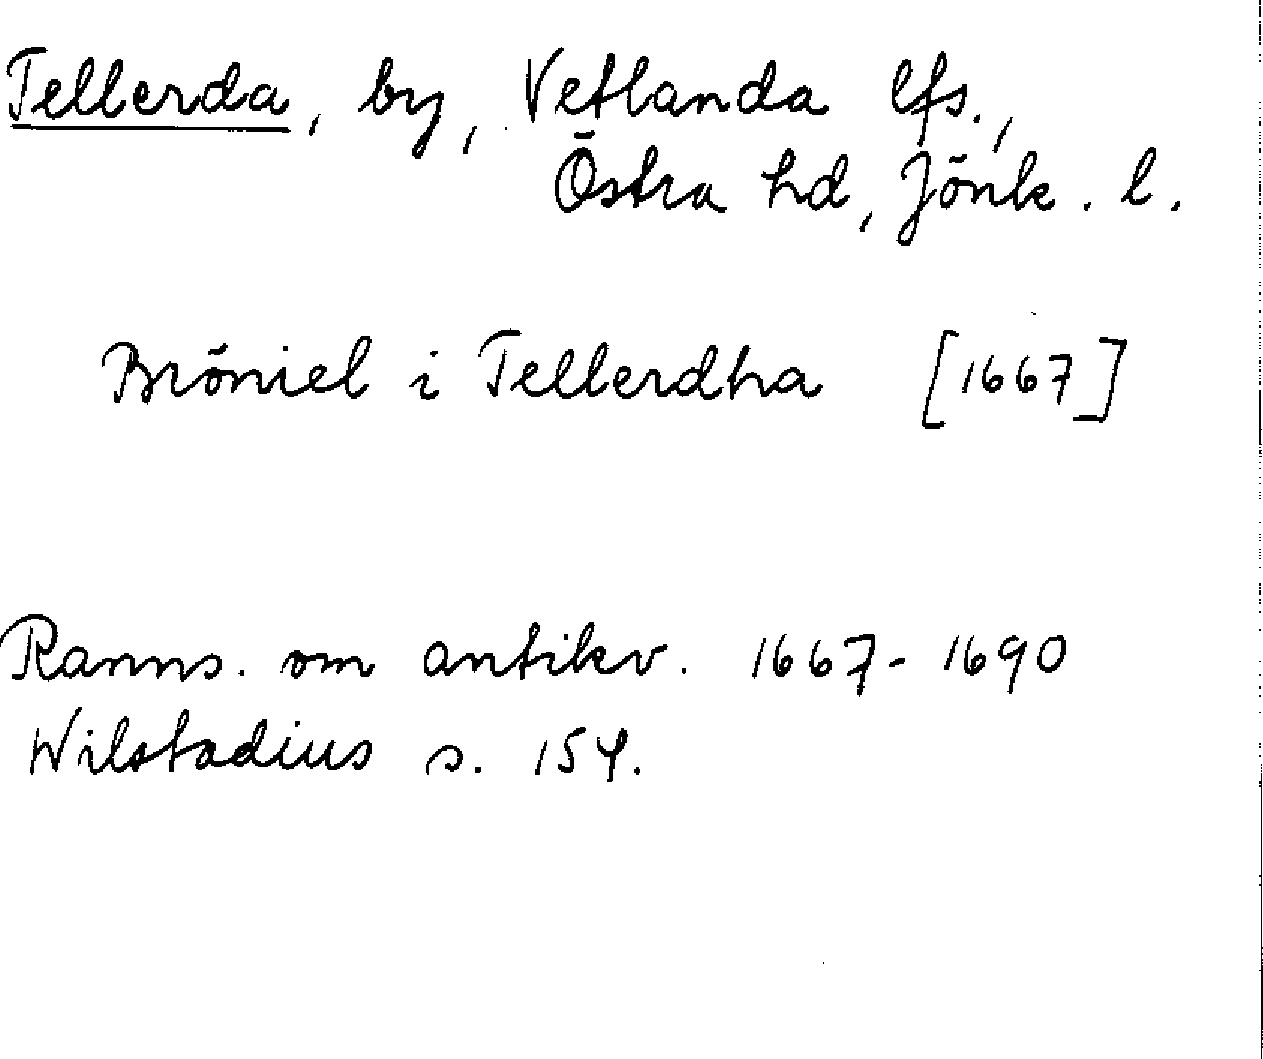 Tellerda, by, Vetlanda lfs.,
Östra hd, Jönk. l.
Bröniel i Tellerdha [1667]
Ranns. om antikv. 1667-1690
Wilstadius s. 154.